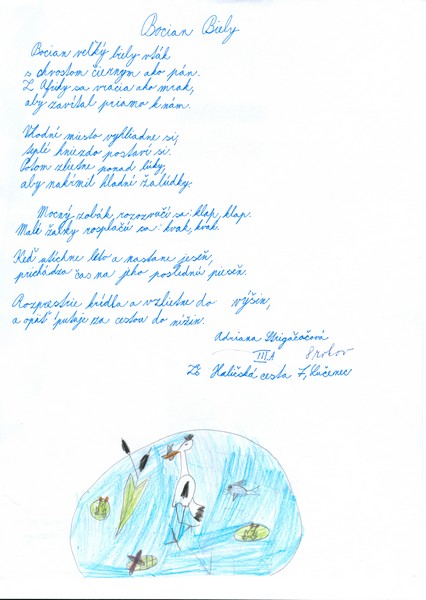 Bocian Biely
Bocian veľký biely vták
s chvostom čiernym ako pán.
Z Afriky sa vracia ako mrak,
aby zavítal priamo k nám.
Vhodné miesto vyhliadne si,
teplé hniezdo postaví si.
Potom zlietne ponad lúky,
aby nakŕmil hladné žalúdky.
Mocný zobák rozozvučí sa: klap, klap.
Malé žabky rozplačú sa: kvak, kvak.
Keď utíchne leto a nastane jeseň,
prichádza čas na jeho poslednú pieseň.
Rozprestrie krídla a vzlietne do výšin,
a opäť putuje za cestou do nížin.
Adriana
III.A 8 rokov
ZŠ Haličská cesta 7, Lučenec